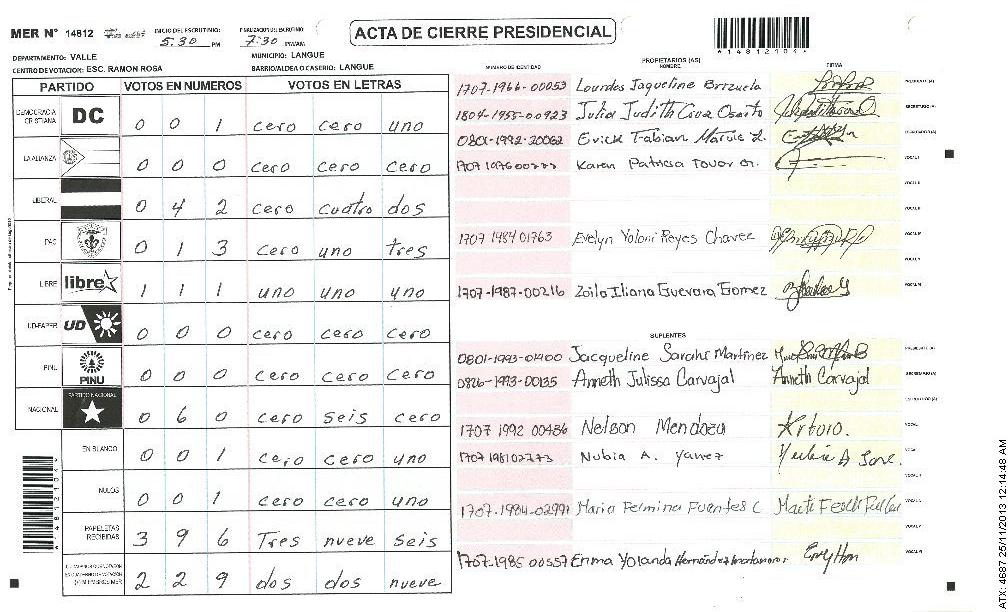 MER N° 14812 INICIO DEL ESCRUTINIO: 5:30 PM 7:30 PM/AM
ACTA DE CIERRE PRESIDENCIAL
*14812101*
DEPARTAMENTO: VALLE MUNICIPIO: LANGUE
CENTRO DE VOTACION: ESC. RAMON ROSA BARRIO/ALDEA O CASERIO: LANGUE
PARTIDO VOTOS EN NUMEROS VOTOS EN LETRAS
DEMOCRACIA CRISTIANA DC 0 0 1 cero cero uno
LA ALIANZA 0 0 0 cero cero cero
LIBERAL 0 4 2 cero cuatro dos
PAC 0 1 3 cero uno tres
LIBRE libre 1 1 1 uno uno uno
UD-FAPER UD 0 0 0 cero cero cero
PINU PINU 0 0 0 cero cero cero
NACIONAL PARTIDO NACIONAL 0 6 0 cero seis cero
EN BLANCO 0 0 1 cero cero uno
NULOS 0 0 1 cero cero uno
PAPELETAS RECIBIDAS 3 9 6 Tres nueve seis
2 2 9 dos dos nueve
PROPIETARIOS (AS)
NUMERO DE IDENTIDAD NOMBRE FIRMA
1707-1966-00053 Lourdes Jaqueline Brizuela PRESIDENTE (A)
1804-1955-00923 Julia Judith Cruz SECRETARIO (A)
0801-1992-20062 Erick Fabian
Karen Patricia Tovar VOCAL I
VOCAL II
1707 1984 01763 Evelyn Yolani Reyes Chavez
1707-1987-00216 Zoila Iliana Guevara Gomez
SUPLENTES
0801-1993-01400 Jacqueline Sarahi Martinez PRESIDENTE (A)
0826-1993-00135 Anneth Julissa Carvajal Anneth Carvajal SECRETARIO (A)
1707 1992 00436 Nelson Mendoza Arturo.
Nubia A. Yanez
1707-1984-02991 Maria Fuentes C
1707-1985 00557 Yolanda
ATX: 4687 25/11/2013 12:14:48 AM